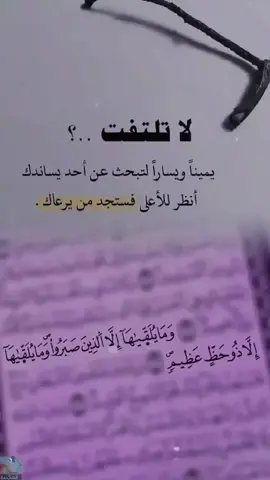 لا تلتفت ..؟
يميناً ويساراً لتبحث عن أحد يساندك
أنظر للأعلى فستجد من يرعاك .
وَمَا يُلَقَّىٰهَآ إِلَّا ٱلَّذِينَ صَبَرُوا۟ وَمَا يُلَقَّىٰهَآ
إِلَّا ذُو حَظٍّ عَظِيمٍ